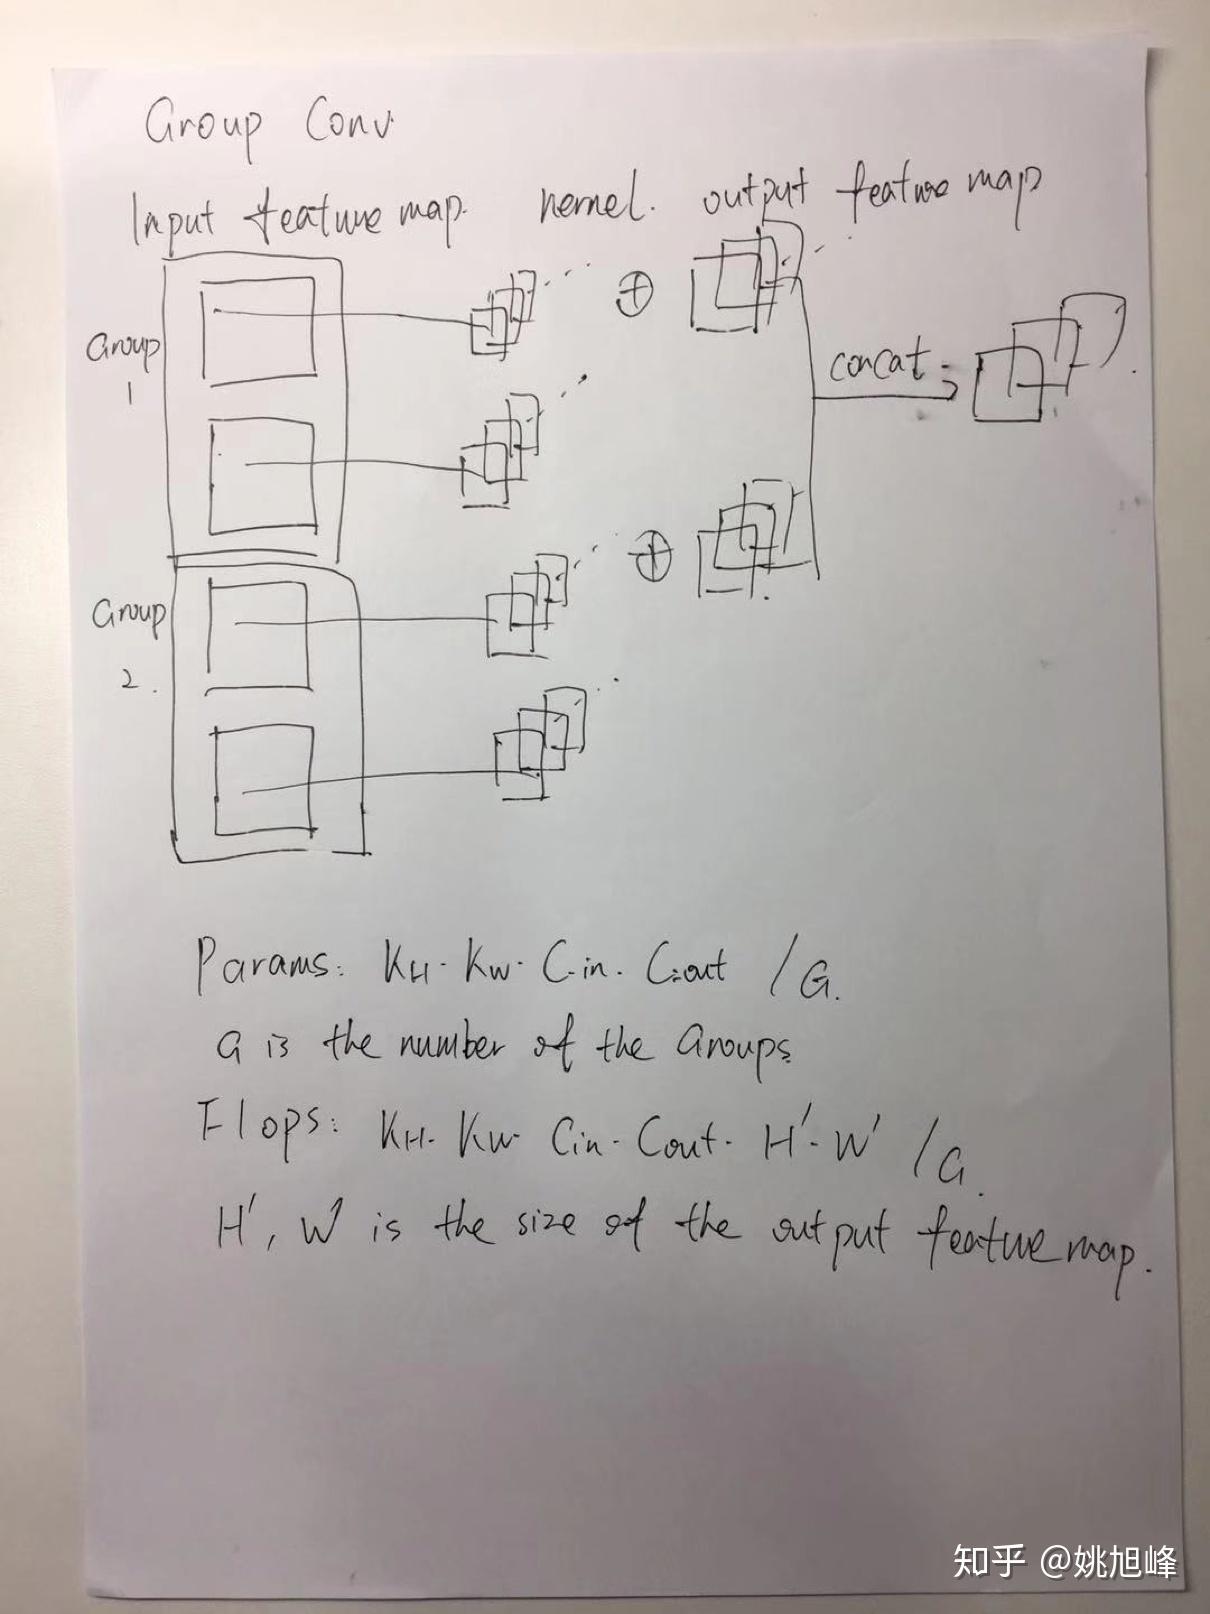 Group Conv.
Input feature map. kernel. output feature map
Group
1
concat
Group
2.
Params: KH · KW · Cin · Cout / G.
G is the number of the Groups.
Flops: KH · KW · Cin · Cout · H' · W' / G.
H', W' is the size of the output feature map.
知乎 @姚旭峰